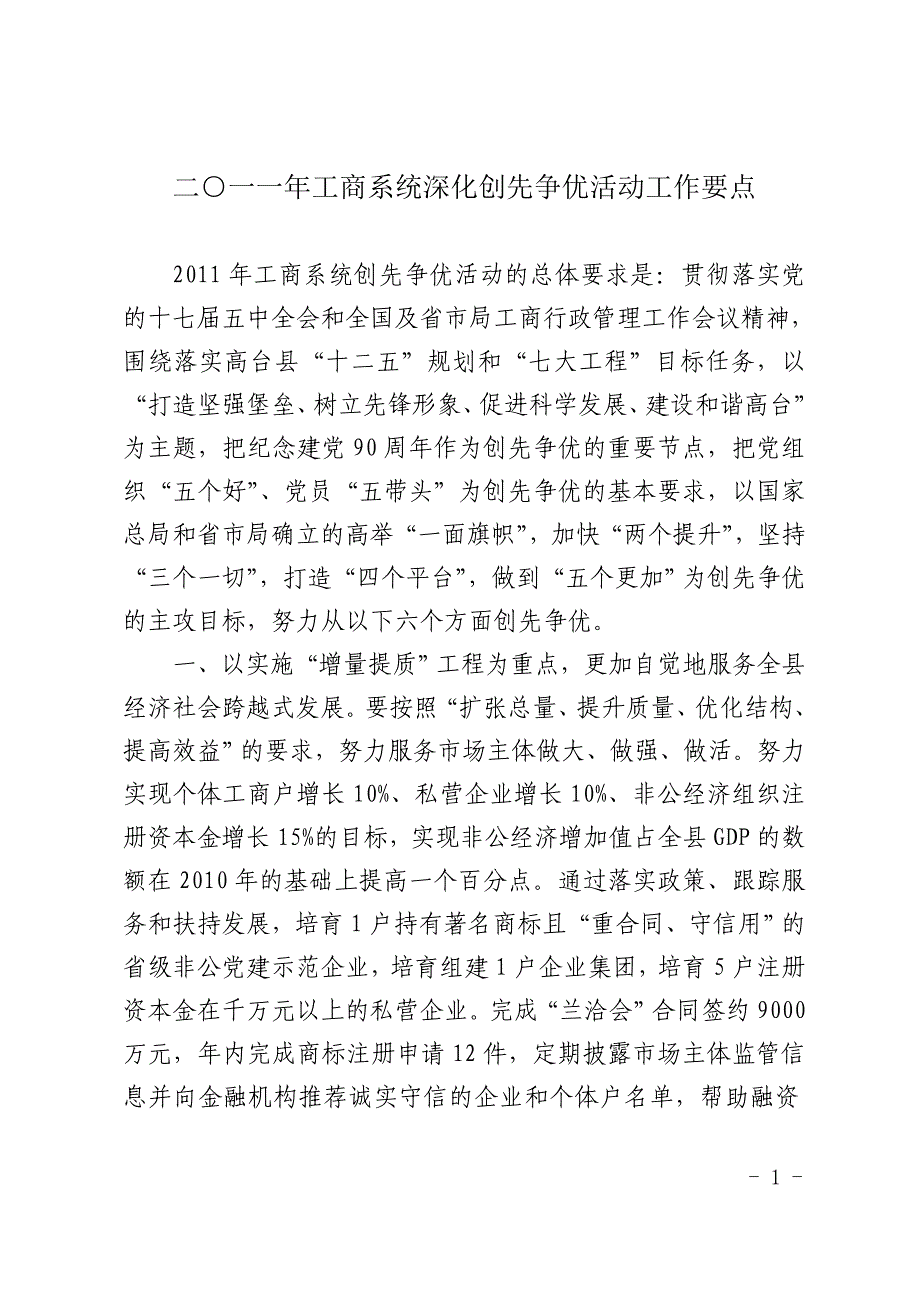 二〇一一年工商系统深化创先争优活动工作要点
2011 年工商系统创先争优活动的总体要求是：贯彻落实党
的十七届五中全会和全国及省市局工商行政管理工作会议精神，
围绕落实高台县“十二五”规划和“七大工程”目标任务，以
“打造坚强堡垒、树立先锋形象、促进科学发展、建设和谐高台”
为主题，把纪念建党 90 周年作为创先争优的重要节点，把党组
织“五个好”、党员“五带头”为创先争优的基本要求，以国家
总局和省市局确立的高举“一面旗帜”，加快“两个提升”，坚持
“三个一切”，打造“四个平台”，做到“五个更加”为创先争优
的主攻目标，努力从以下六个方面创先争优。
一、以实施“增量提质”工程为重点，更加自觉地服务全县
经济社会跨越式发展。要按照“扩张总量、提升质量、优化结构、
提高效益”的要求，努力服务市场主体做大、做强、做活。努力
实现个体工商户增长 10%、私营企业增长 10%、非公经济组织注
册资本金增长 15%的目标，实现非公经济增加值占全县 GDP 的数
额在 2010 年的基础上提高一个百分点。通过落实政策、跟踪服
务和扶持发展，培育 1 户持有著名商标且“重合同、守信用”的
省级非公党建示范企业，培育组建 1 户企业集团，培育 5 户注册
资本金在千万元以上的私营企业。完成“兰洽会”合同签约 9000
万元，年内完成商标注册申请 12 件，定期披露市场主体监管信
息并向金融机构推荐诚实守信的企业和个体户名单，帮助融资
- 1 -